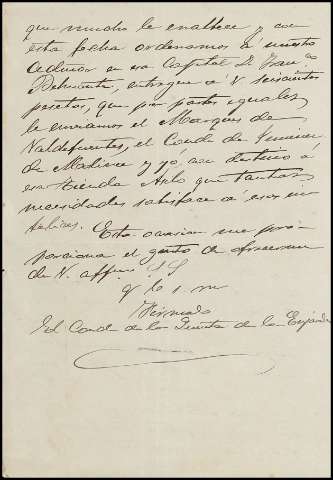 que mucho le enaltece y con
esta fecha ordenamos á nuestro
en esa Capital D. Fran.co
Belmonte, entregue á V. seiscientas
pesetas, que por partes iguales
le enviamos el Marques de
Valdefuentes, el Conde de
de Molina y yo, con destino á
esa Tienda Asilo que tantas
necesidades satisface á esos in
felices. Esta ocasion me pro
porciona el gusto de ofrecerme
de V. affmo. S. S.
q b s m
Firmado
El Conde de la Quinta de la Enjarada